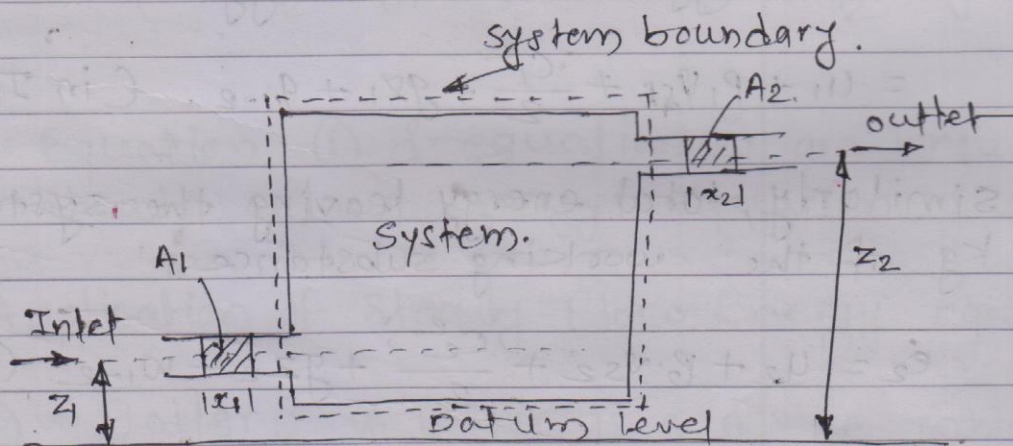 system boundary.
A2.
outlet
|x2|
System.
Z2
A1
Inlet
|x1|
Z1
Datum level